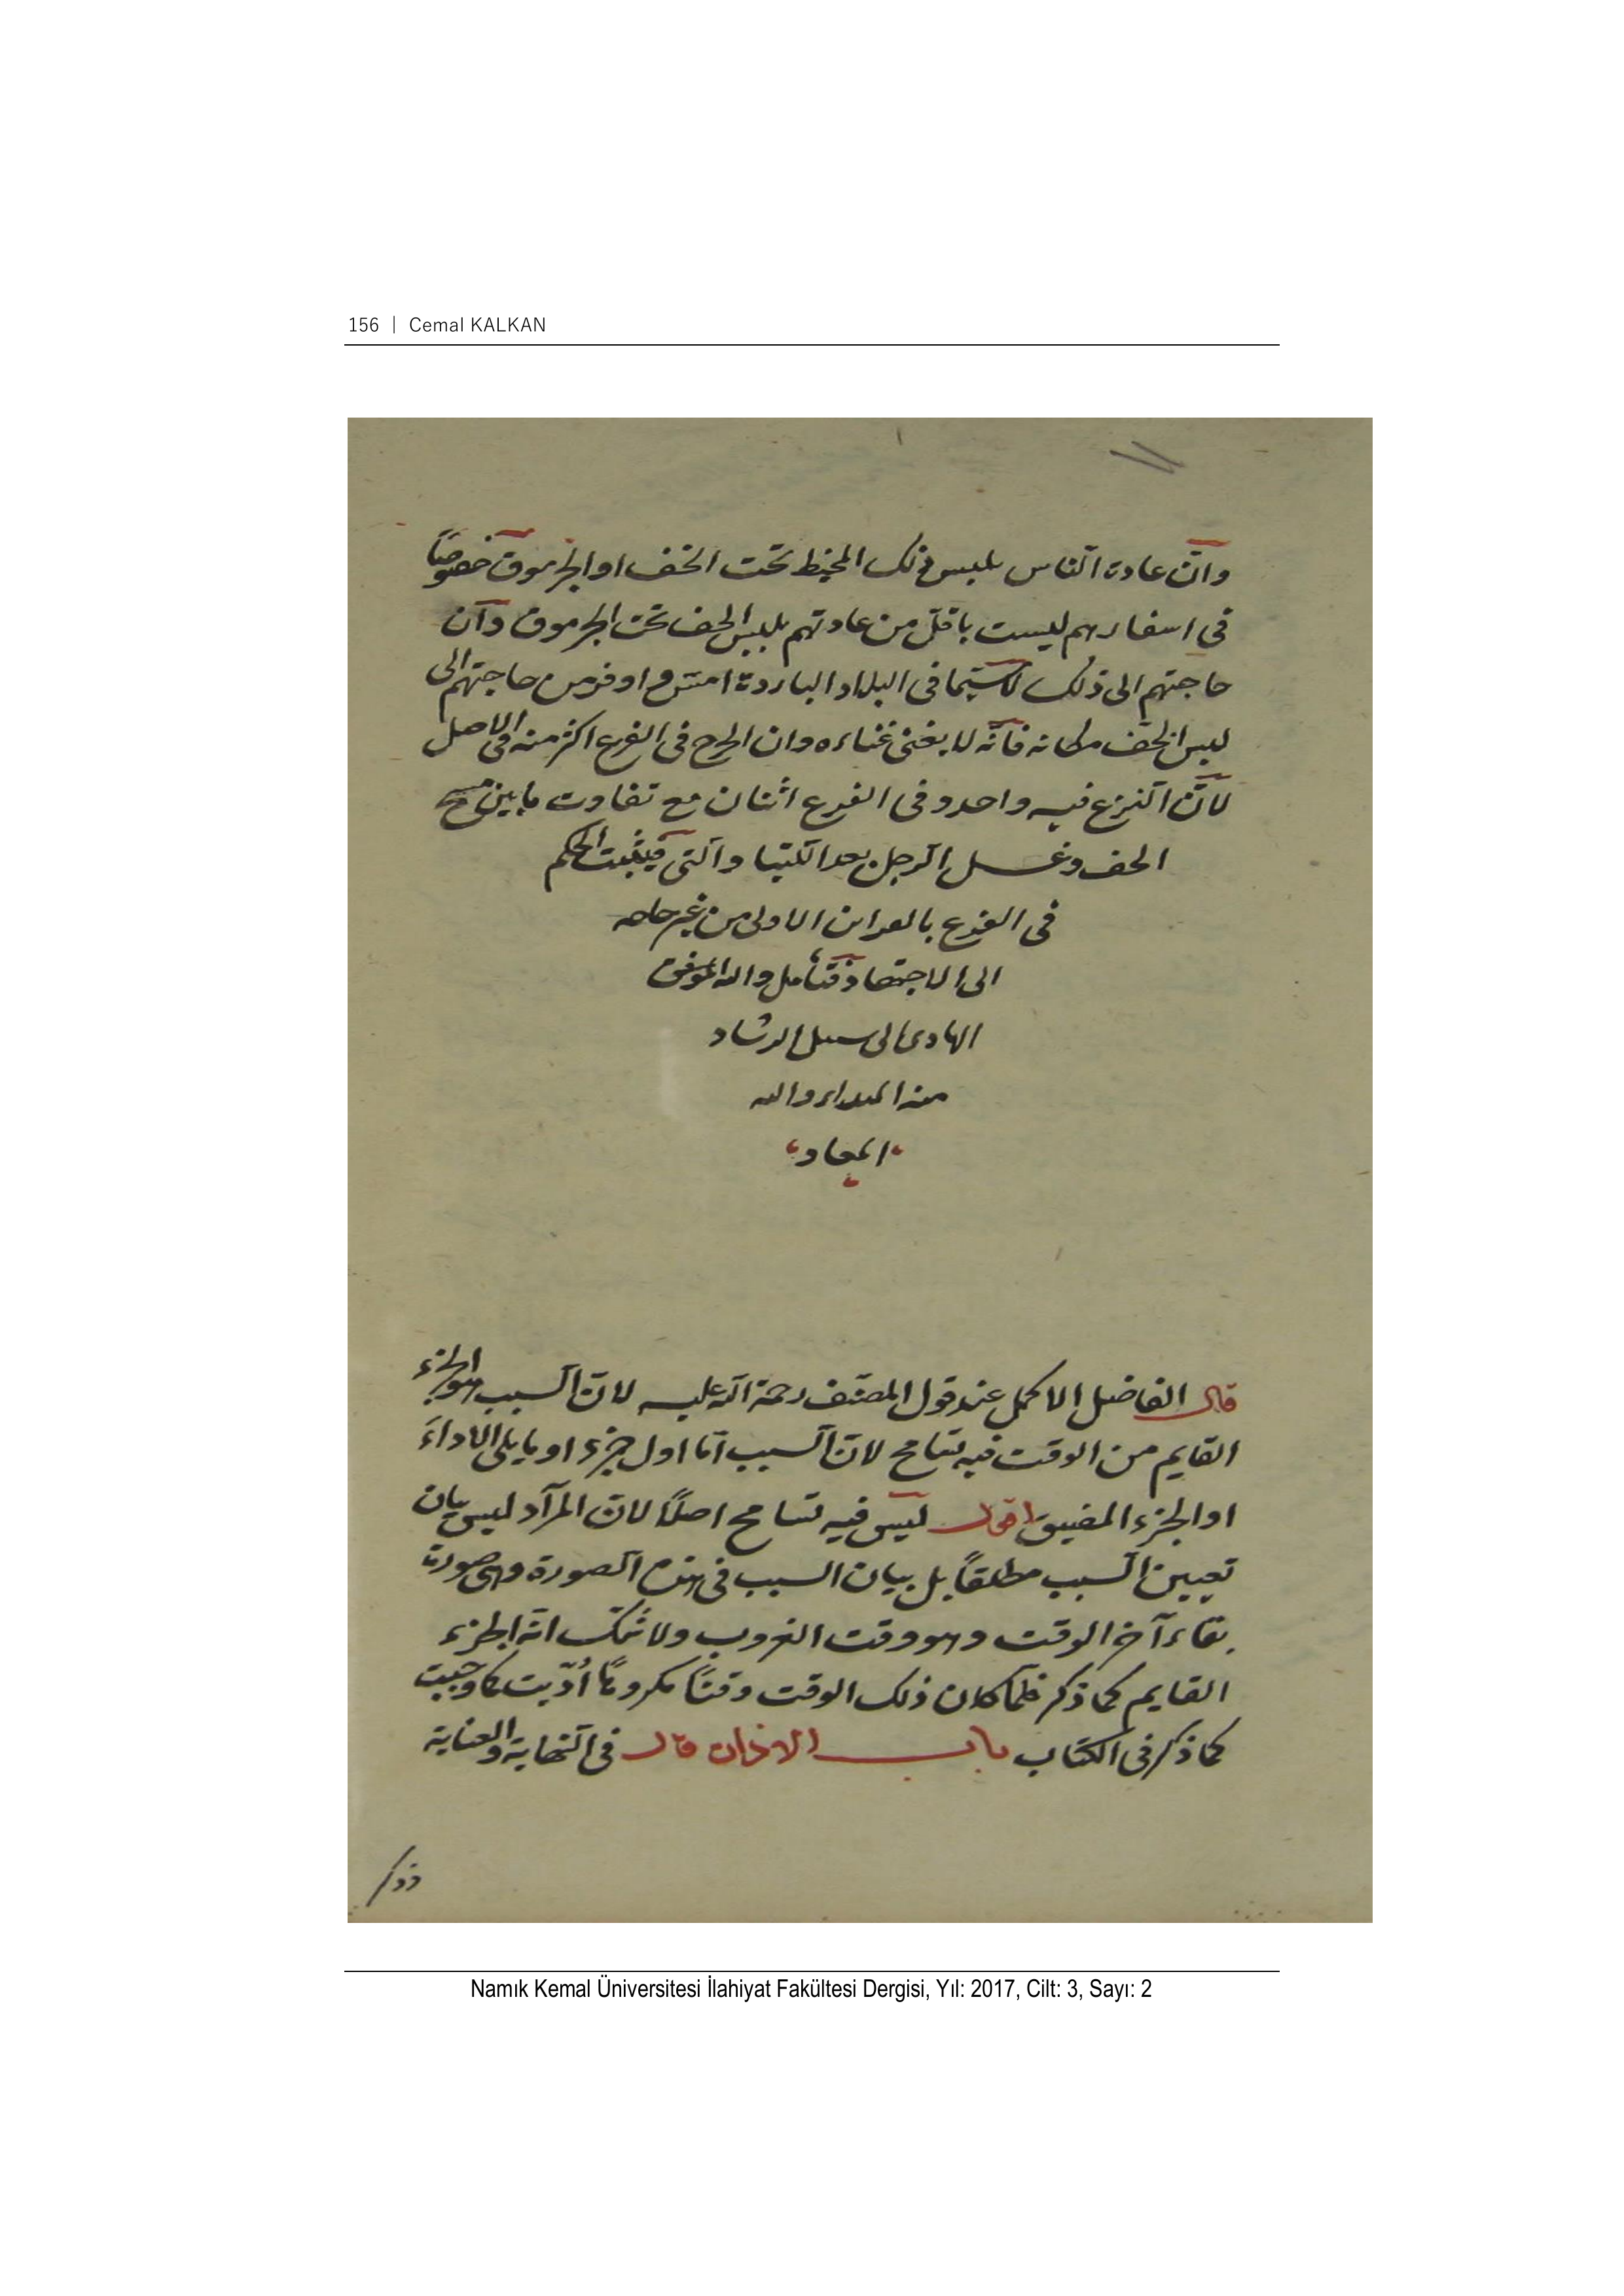 156 | Cemal KALKAN
وانّ عادة الناس بلبس ذلك المخيط تحت الخف او الجرموق خصوصًا
فى اسفارهم ليست باقلّ من عادتهم بلبس الخف تحت الجرموق وانّ
حاجتهم الى ذلك لاسيّما فى البلاد الباردة امسّ واوفر من حاجتهم الى
لبس الخف مكانه فانّه لا يغنى غناءه وان الحرج فى الفرع اكثر منه فى الاصل
لانّ النزع فيه واحد وفى الفرع اثنان مع تفاوت ما بين مسح
الخف وغسل الرجل بعد اللتيّا والتى فيثبت الحكم
فى الفرع بالطريق الاولى من غير حاجه
الى الاجتهاد فتأمل والله الموفق
الهادى الى سبيل الرشاد
منه المبداء واليه
المعاد
قال الفاضل الاكمل عند قول المصنّف رحمة الله عليه لانّ السبب هو الجزء
القايم من الوقت فيه تسامح لانّ السبب امّا اول جزء او ما يلى الاداء
او الجزء المضيق اقول ليس فيه تسامح اصلًا لانّ المراد ليس بيان
تعيين السبب مطلقًا بل بيان السبب فى هذه الصورة وهى صورة
بقاء آخر الوقت وهو وقت الغروب ولا شكّ انّه الجزء
القايم كما ذكر فلمّا كان ذلك الوقت وقتًا مكروهًا أُدّيت كما وجبت
كما ذكر فى الكتاب باب الاذان قال فى النهاية والعناية
ذكر
Namık Kemal Üniversitesi İlahiyat Fakültesi Dergisi, Yıl: 2017, Cilt: 3, Sayı: 2